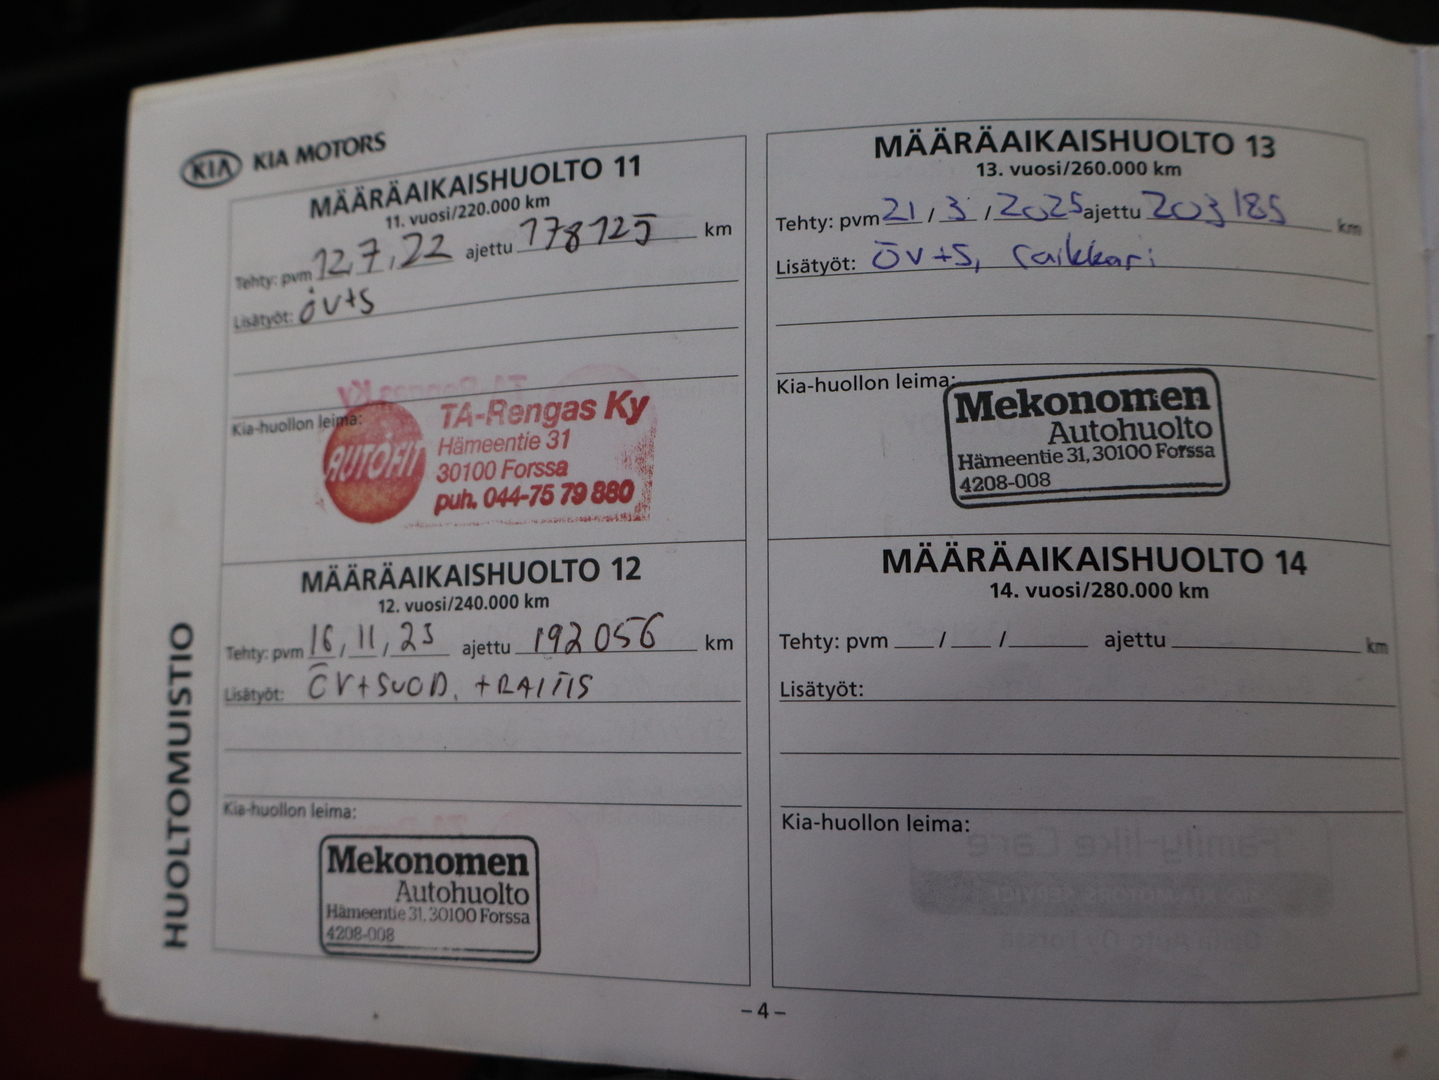 KIA KIA MOTORS
MÄÄRÄAIKAISHUOLTO 11
11. vuosi/220.000 km
Tehty: pvm 12,7,22 ajettu 178125 km
Lisätyöt: öv+s
Kia-huollon leima:
AUTOFIT
TA-Rengas Ky
Hämeentie 31
30100 Forssa
puh. 044-75 79 880
MÄÄRÄAIKAISHUOLTO 12
12. vuosi/240.000 km
Tehty: pvm 16, 11, 23 ajettu 192056 km
Lisätyöt: ÖV+SUOD. +RAITIS
Kia-huollon leima:
Mekonomen
Autohuolto
Hämeentie 31, 30100 Forssa
4208-008
MÄÄRÄAIKAISHUOLTO 13
13. vuosi/260.000 km
Tehty: pvm 21 / 3 / 2025 ajettu 203185 km
Lisätyöt: öv+s, raikkari
Kia-huollon leima:
Mekonomen
Autohuolto
Hämeentie 31, 30100 Forssa
4208-008
MÄÄRÄAIKAISHUOLTO 14
14. vuosi/280.000 km
Tehty: pvm ___ / ___ / ______ ajettu ______ km
Lisätyöt:
Kia-huollon leima:
HUOLTOMUISTIO
– 4 –